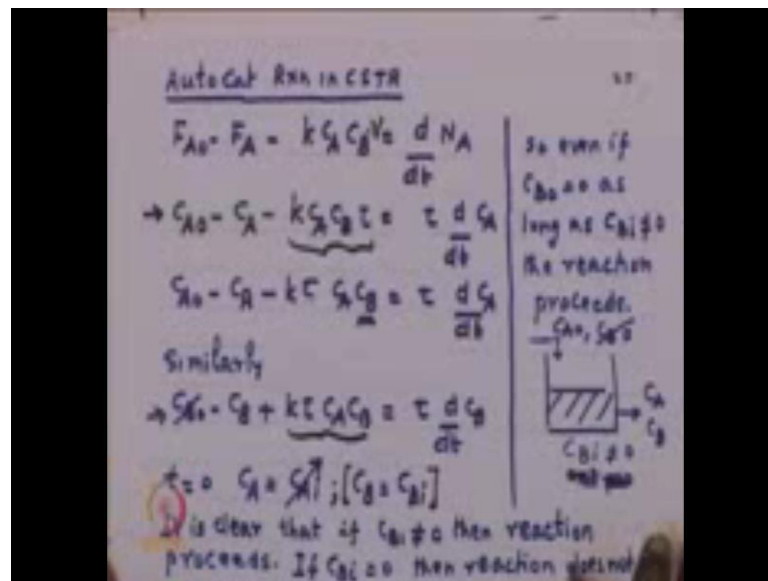 AutoCat Rxn in CSTR
F_A0 - F_A - k C_A C_B V = d/dt N_A
→ C_A0 - C_A - k C_A C_B τ = τ d/dt C_A
C_A0 - C_A - kτ C_A C_B = τ d/dt C_A
Similarly
→ C_B0 - C_B + kτ C_A C_B = τ d/dt C_B
t=0 C_A = ; [C_B = C_Bi]
It is clear that if C_Bi ≠ 0 then reaction
proceeds. If C_Bi = 0 then reaction does not
so even if
C_B0 = 0 as
long as C_Bi ≠ 0
the reaction
proceeds.
C_A0,
C_A
C_B
C_Bi ≠ 0